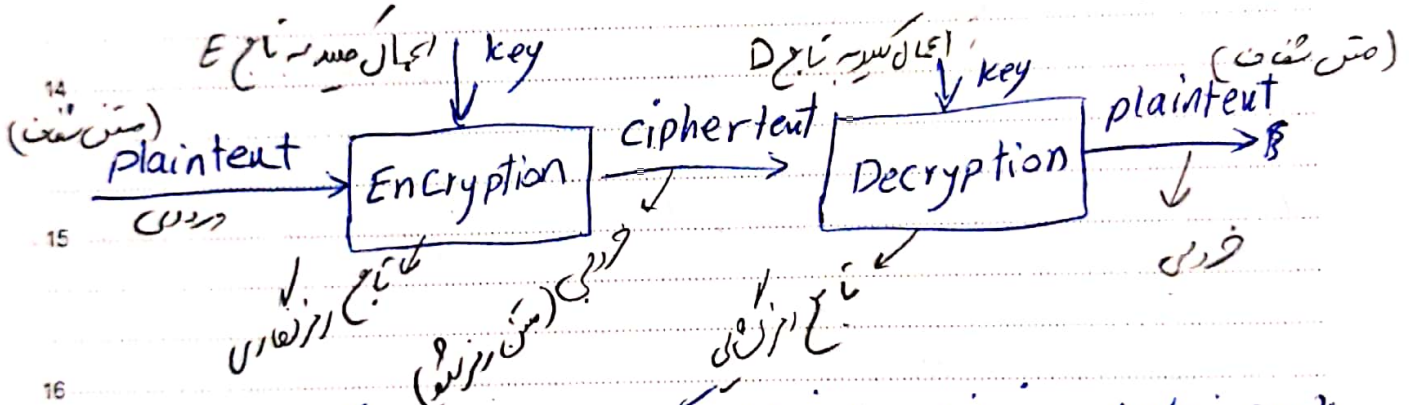 اعمال کلید به تابع E
key
اعمال کلید به تابع D
key
14
(متن شفاف)
(متن شفاف)
plaintext
Encryption
ciphertext
Decryption
plaintext
ورودی
15
تابع رمزنگاری
خروجی (متن رمز شده)
تابع رمزگشایی
خروجی
16